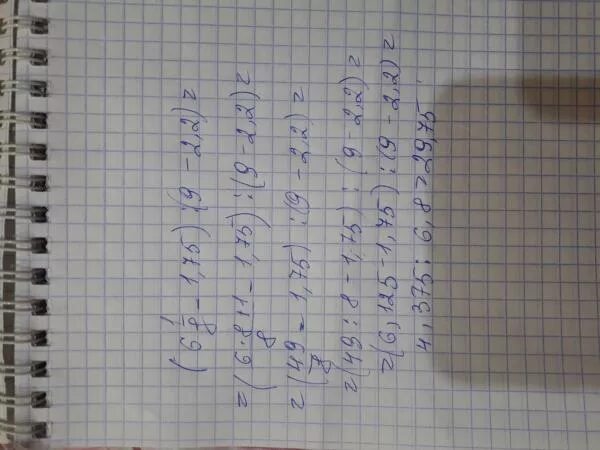 (6 1/8 - 1,75) : (9 - 2,2) =
= (6·8+1/8 - 1,75) : (9 - 2,2) =
= (49/8 - 1,75) : (9 - 2,2) =
= (49 : 8 - 1,75) : (9 - 2,2) =
= (6,125 - 1,75) : (9 - 2,2) =
4,375 : 6,8 = 29,75